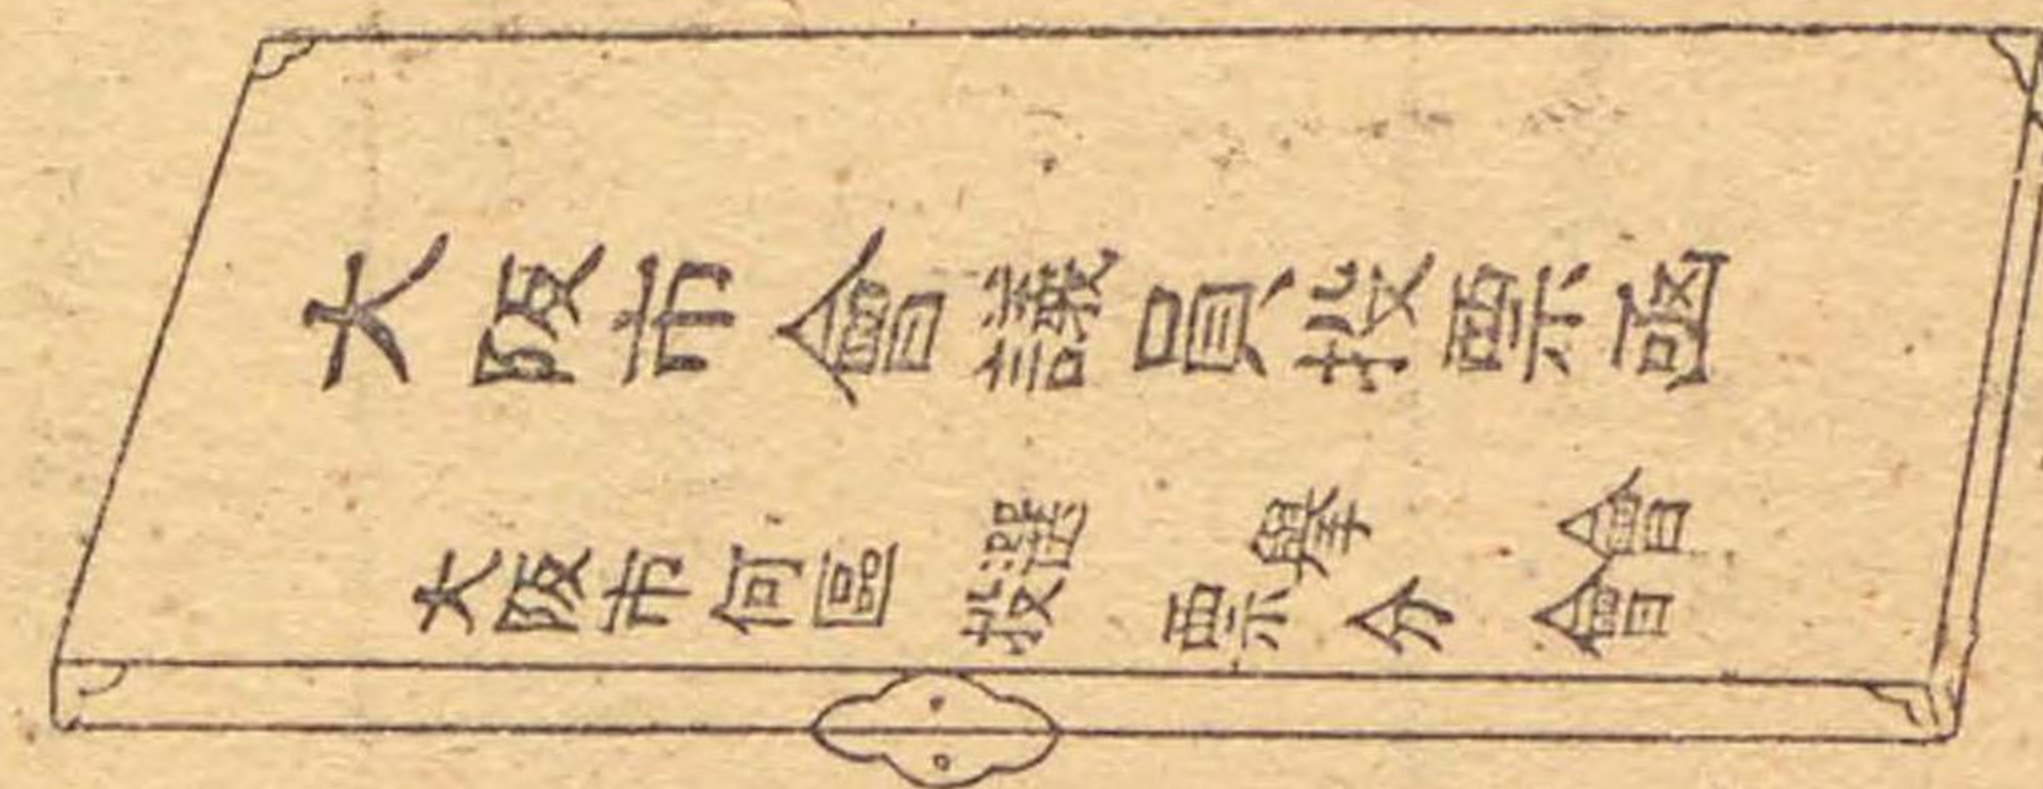 大阪市會議員投票凾
大阪市何區
選擧會
投票分會